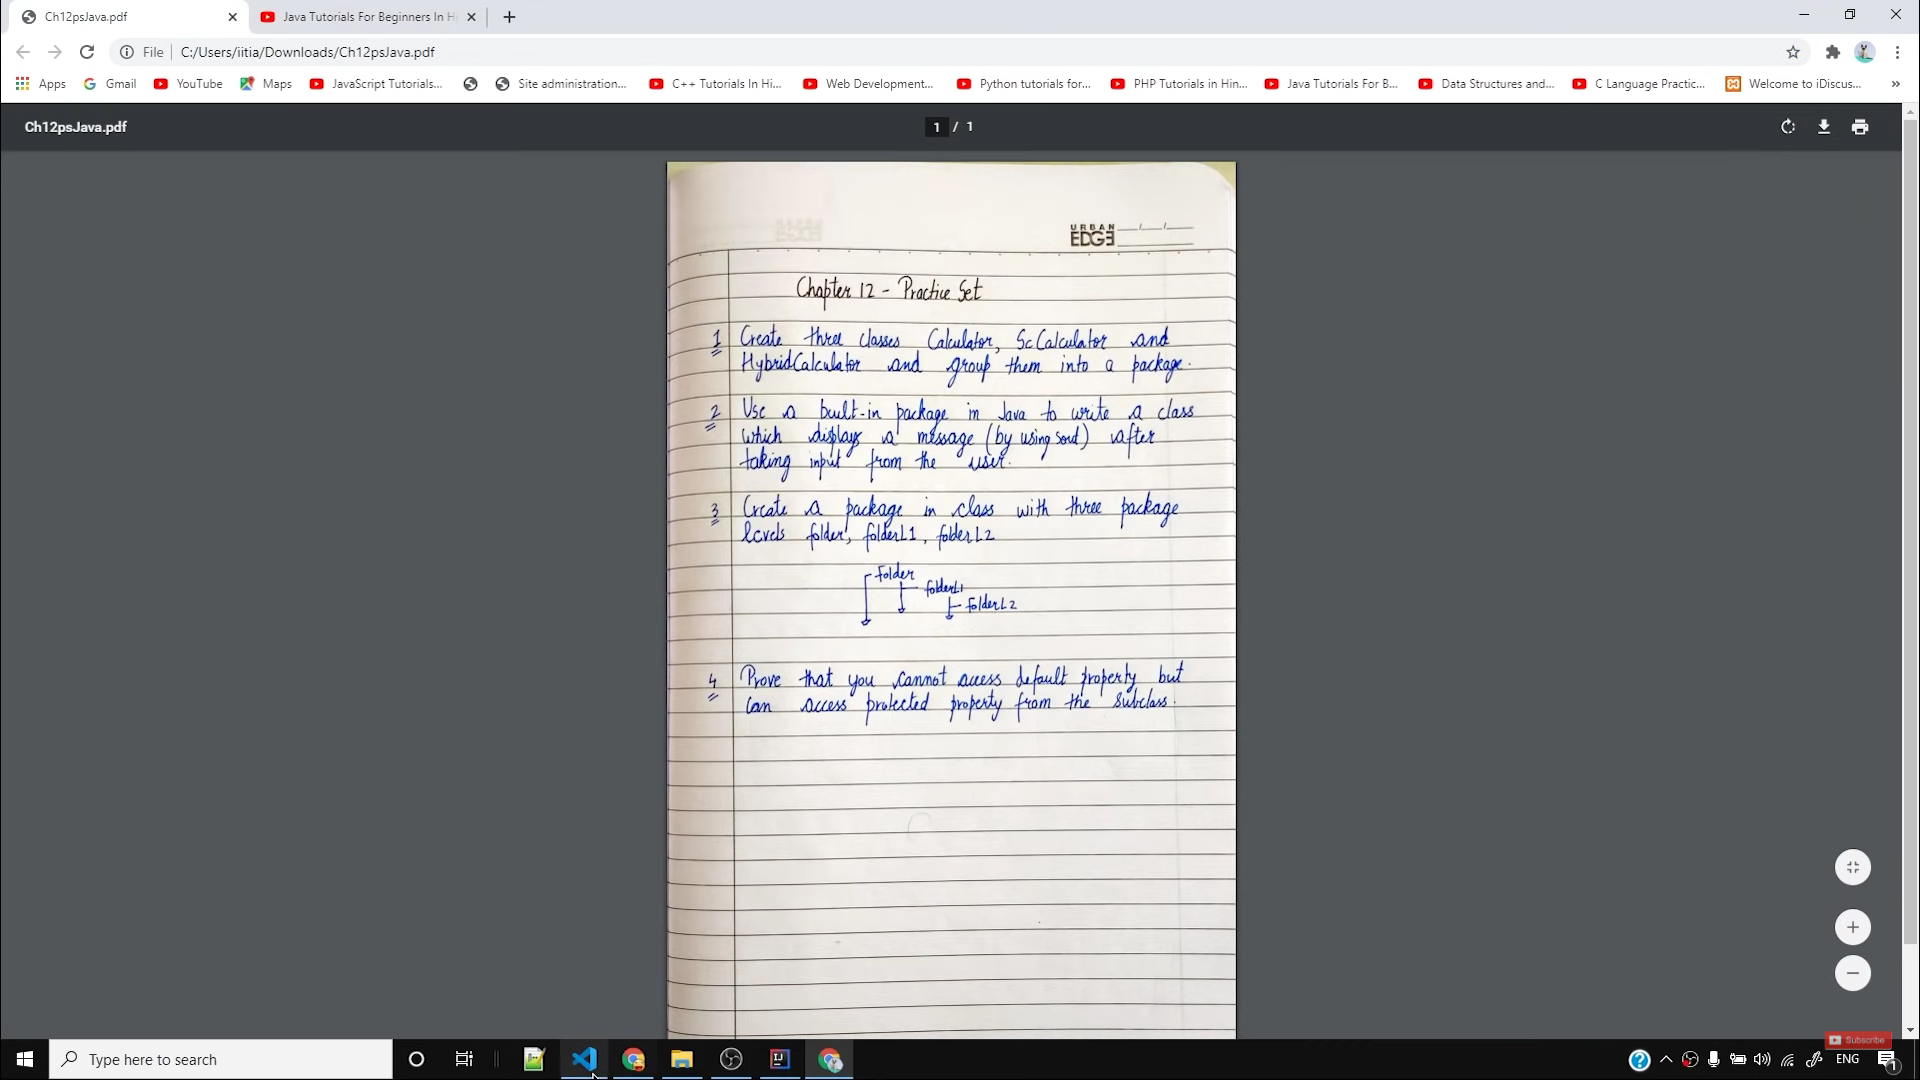 Ch12psJava.pdf
Java Tutorials For Beginners In H
File C:/Users/iitia/Downloads/Ch12psJava.pdf
Apps Gmail YouTube Maps JavaScript Tutorials... Site administration... C++ Tutorials In Hi... Web Development... Python tutorials for... PHP Tutorials in Hin... Java Tutorials For B... Data Structures and... C Language Practic... Welcome to iDiscus... »
Ch12psJava.pdf
1 / 1
URBAN
EDGE
Chapter 12 - Practice Set
1 Create three classes Calculator, ScCalculator and
HybridCalculator and group them into a package.
2 Use a built-in package in Java to write a class
which displays a message (by using sout) after
taking input from the user.
3 Create a package in class with three package
levels folder, folderL1, folderL2
folder
folderL1
folderL2
4 Prove that you cannot access default property but
can access protected property from the subclass.
Subscribe
Type here to search
ENG
1